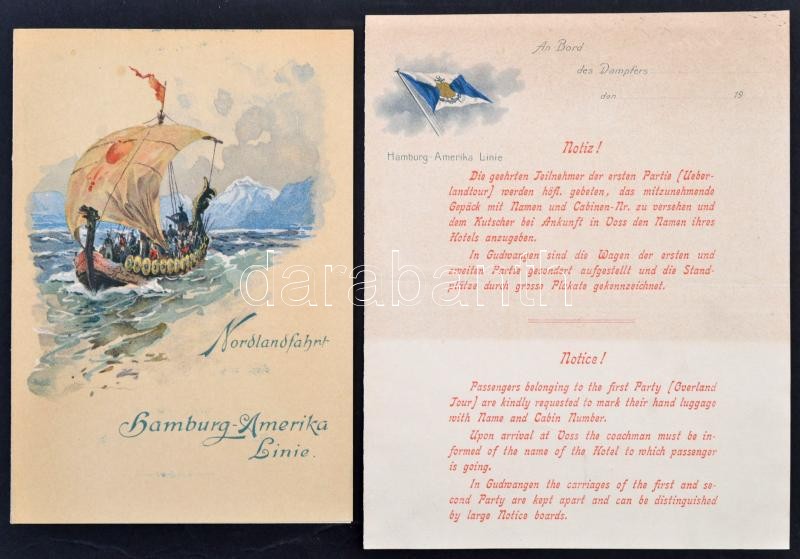 Nordlandfahrt
Hamburg-Amerika
Linie.
An Bord
des Dampfers
den 19
Hamburg-Amerika Linie
Notiz!
Die geehrten Teilnehmer der ersten Partie [Ueber-
landtour] werden höfl. gebeten, das mitzunehmende
Gepäck mit Namen und Cabinen-Nr. zu versehen und
dem Kutscher bei Ankunft in Voss den Namen ihres
Hotels anzugeben.
In Gudwangen sind die Wagen der ersten und
zweiten Partie gesondert aufgestellt und die Stand-
plätze durch grosse Plakate gekennzeichnet.
Notice!
Passengers belonging to the first Party [Overland
Tour] are kindly requested to mark their hand luggage
with Name and Cabin Number.
Upon arrival at Voss the coachman must be in-
formed of the name of the Hotel to which passenger
is going.
In Gudwangen the carriages of the first and se-
cond Party are kept apart and can be distinguished
by large Notice boards.
darabanth